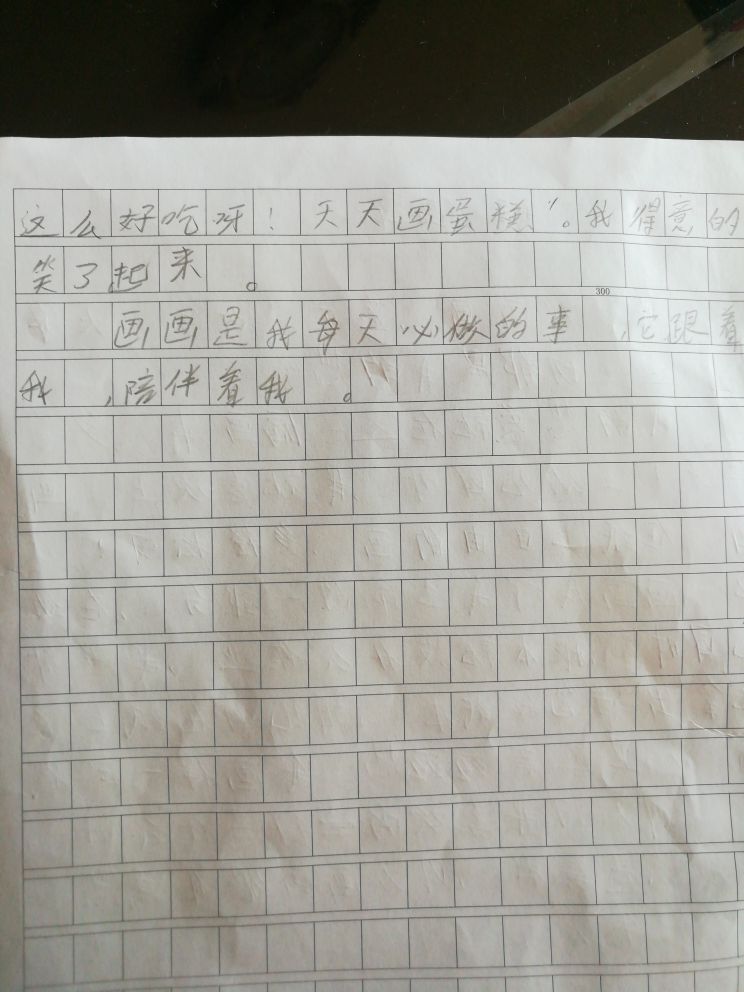 这么好吃呀！天天画蛋糕”。我得意的
笑了起来。
300
画画是我每天必做的事，它跟着
我，陪伴着我。